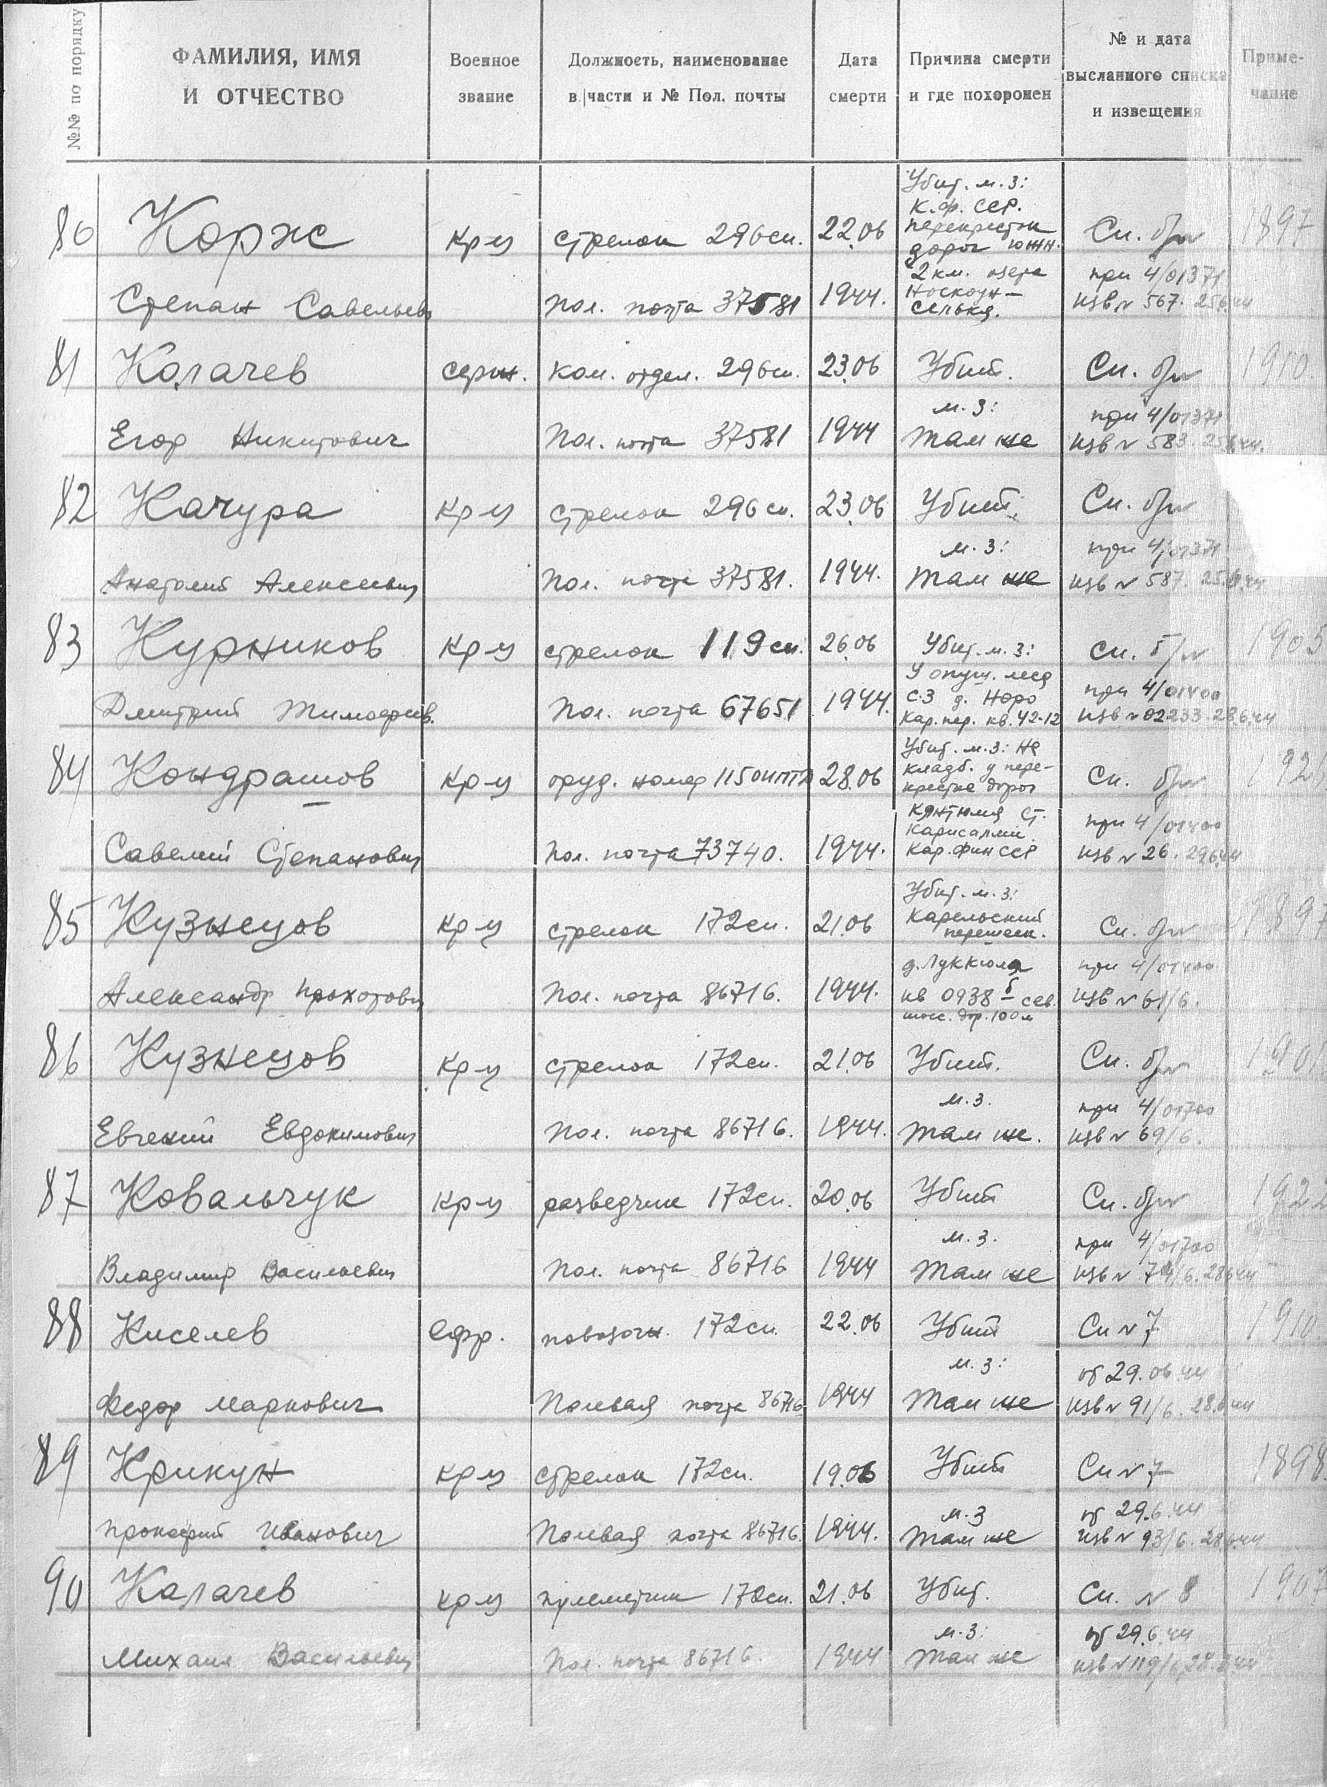 №№ по порядку
ФАМИЛИЯ, ИМЯ
И ОТЧЕСТВО
Военное
звание
Должность, наименование
в части и № Пол. почты
Дата
смерти
Причина смерти
и где похоронен
№ и дата
высланного списка
и извещения
Приме-
чание
80 Корж кр-ц стрелок 296 сп. 22.06
Убит. м. з:
К. ф. ССР.
перекресток
дорог южн.
2 км. озера
Сп. б/н 1897
Степан Савельев Пол. почта 37581 1944.
при 4/01371
изв № 567. 25.6.44
81 Калачев серж. ком. отдел. 296 сп. 23.06 Убит. Сп. б/н 1910.
м. з: при 4/01371
Егор Никитович Пол. почта 37581 1944 там же изв № 583. 25.6.44.
82 Качура кр-ц стрелок 296 сп. 23.06 Убит. Сп. б/н
м. з: при 4/01371
Анатолий Алексеевич Пол. почта 37581. 1944. там же изв № 587. 25.6.44
83 Курников кр-ц стрелок 119 сп. 26.06 Убит. м. з: сп. б/н 1905
у опуш. леса
Дмитрий Тимофеев. Пол. почта 67651 1944. с-з д. Норо при 4/01400
Кар. пер. кв. 42-12 изв № 02233 28.6.44
84 Кондрашов кр-ц оруд. номер 115 оиптд 28.06
Убит. м. з: на
кладб. у пере-
крестка дорог
Сп. б/н 192
ст. при 4/01400
Карисалми.
Савелий Степанович Пол. почта 73740. 1944. Кар. фин ССР изв № 26. 29.6.44
85 Кузнецов кр-ц стрелок 172 сп. 21.06
Убит. м. з:
Карельский
перешеек.
Сп. б/н 1897
д. Луккюля при 4/01400
Александр Прохорович Пол. почта 86716. 1944. кв 0938 б сев. изв № 61/6.
шос. дор. 100 м
86 Кузнецов кр-ц стрелок 172 сп. 21.06 Убит. Сп. б/н 1901.
м. з. при 4/01700
Евгений Евдокимович Пол. почта 86716. 1944. там же. изв № 69/6.
87 Ковальчук кр-ц разведчик 172 сп. 20.06 Убит Сп. б/н 1922
м. з. при 4/01700
Владимир Васильевич Пол. почта 86716 1944 там же изв № 74/6. 28.6.44
88 Киселев ефр. повозочн. 172 сп. 22.06 Убит Сп № 7 1910.
м. з: от 29.06.44
Федор Маркович Полевая почта 86716 1944 там же изв № 91/6. 28.6.44
89 Крикун кр-ц стрелок 172 сп. 19.06 Убит Сп № 7 1898.
м. з от 29.6.44
Прокофий Иванович Полевая почта 86716. 1944. там же изв № 93/6. 28.6.44
90 Калачев кр-ц пулеметчик 172 сп. 21.06 Убит. Сп. № 8 1907
м. з: от 29.6.44
Михаил Васильевич Пол. почта 86716. 1944 там же изв № 119/6. 28.6.44